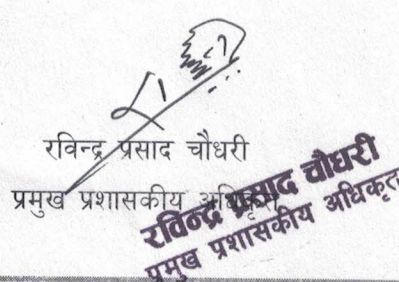 रविन्द्र प्रसाद चौधरी
प्रमुख प्रशासकीय अधिकृत
रविन्द्र प्रसाद चौधरी
प्रमुख प्रशासकीय अधिकृत